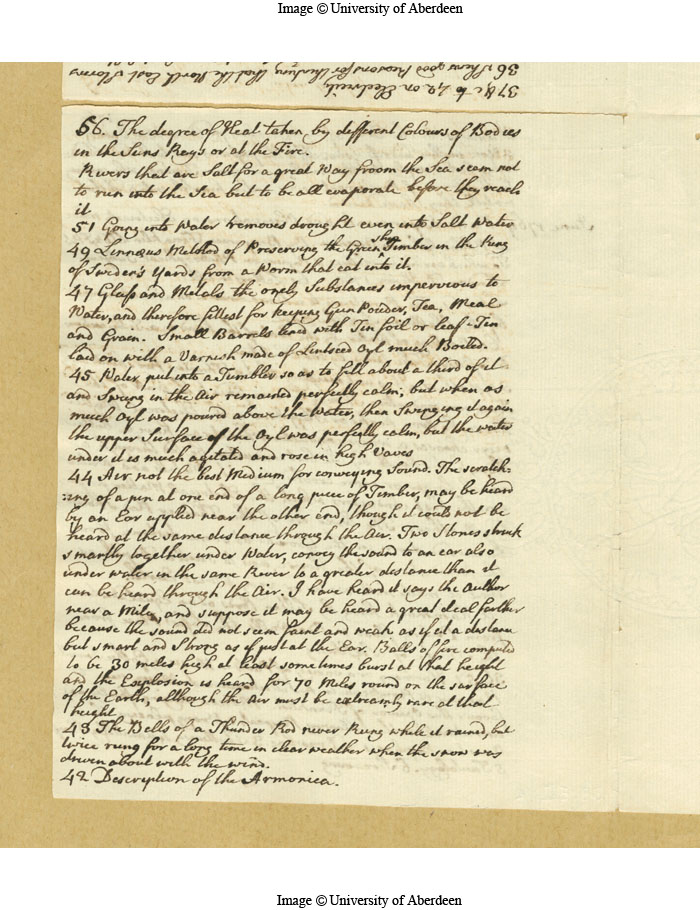 Image © University of Aberdeen
36 Shews good Reasons for thinking that the North East Storms
37 & c to 42 on Electricity
56. The degree of Heat taken by different Colours of Bodies
in the Suns Rays or at the Fire.
Rivers that are Salt for a great Way froom the Sea seam not
to run into the Sea but to be all evaporate before they reach
it
51 Going into Water removes drought even into Salt Water
49 Linnæus Methood of Preserving the Green ship Timber in the King
of Sweden's Yards from a Worm that eat into it.
47 Glass and Metals the onely Substances impervious to
Water, and therefore fittest for keeping Gun Powder, Tea, Meal
and Grain. Small Barrels lined with Tin foil or leaf-Tin
laid on with a Varnish made of Lintseed Oyl much Boiled.
45 Water put into a Tumbler so as to fill about a third of it
and Swung in the Air remained perfectly calm, but when as
much Oyl was poured above the Water, then Swinging it again
the upper Surface of the Oyl was perfectly calm, but the water
under it is much agitated and rose in high Vaves
44 Air not the best Medium for conveying Sound. The scratch-
:ing of a pin at one end of a long piece of Timber, may be heard
by an Ear applied near the other end, though it could not be
heard at the same distance through the Air. Two Stones struck
smartly together under Water, convey the sound to an ear also
under water in the same River to a greater distance than it
can be heard through the Air. I have heard it says the Author
near a Mile, and suppose it may be heard a great deal farther
because the sound did not seem faint and weak as if at a distance
but smart and Strong as if just at the Ear. Balls of fire computed
to be 30 miles high at least sometimes burst at that height
and the Explosion is heard for 70 Miles round on the surface
of the Earth, although the Air must be extreamly rare at that
height
43 The Bells of a Thunder Rod never Rung while it rained, but
twice rung for a long time in clear weather when the snow was
driven about with the wind.
42 Description of the Armonica.
Image © University of Aberdeen